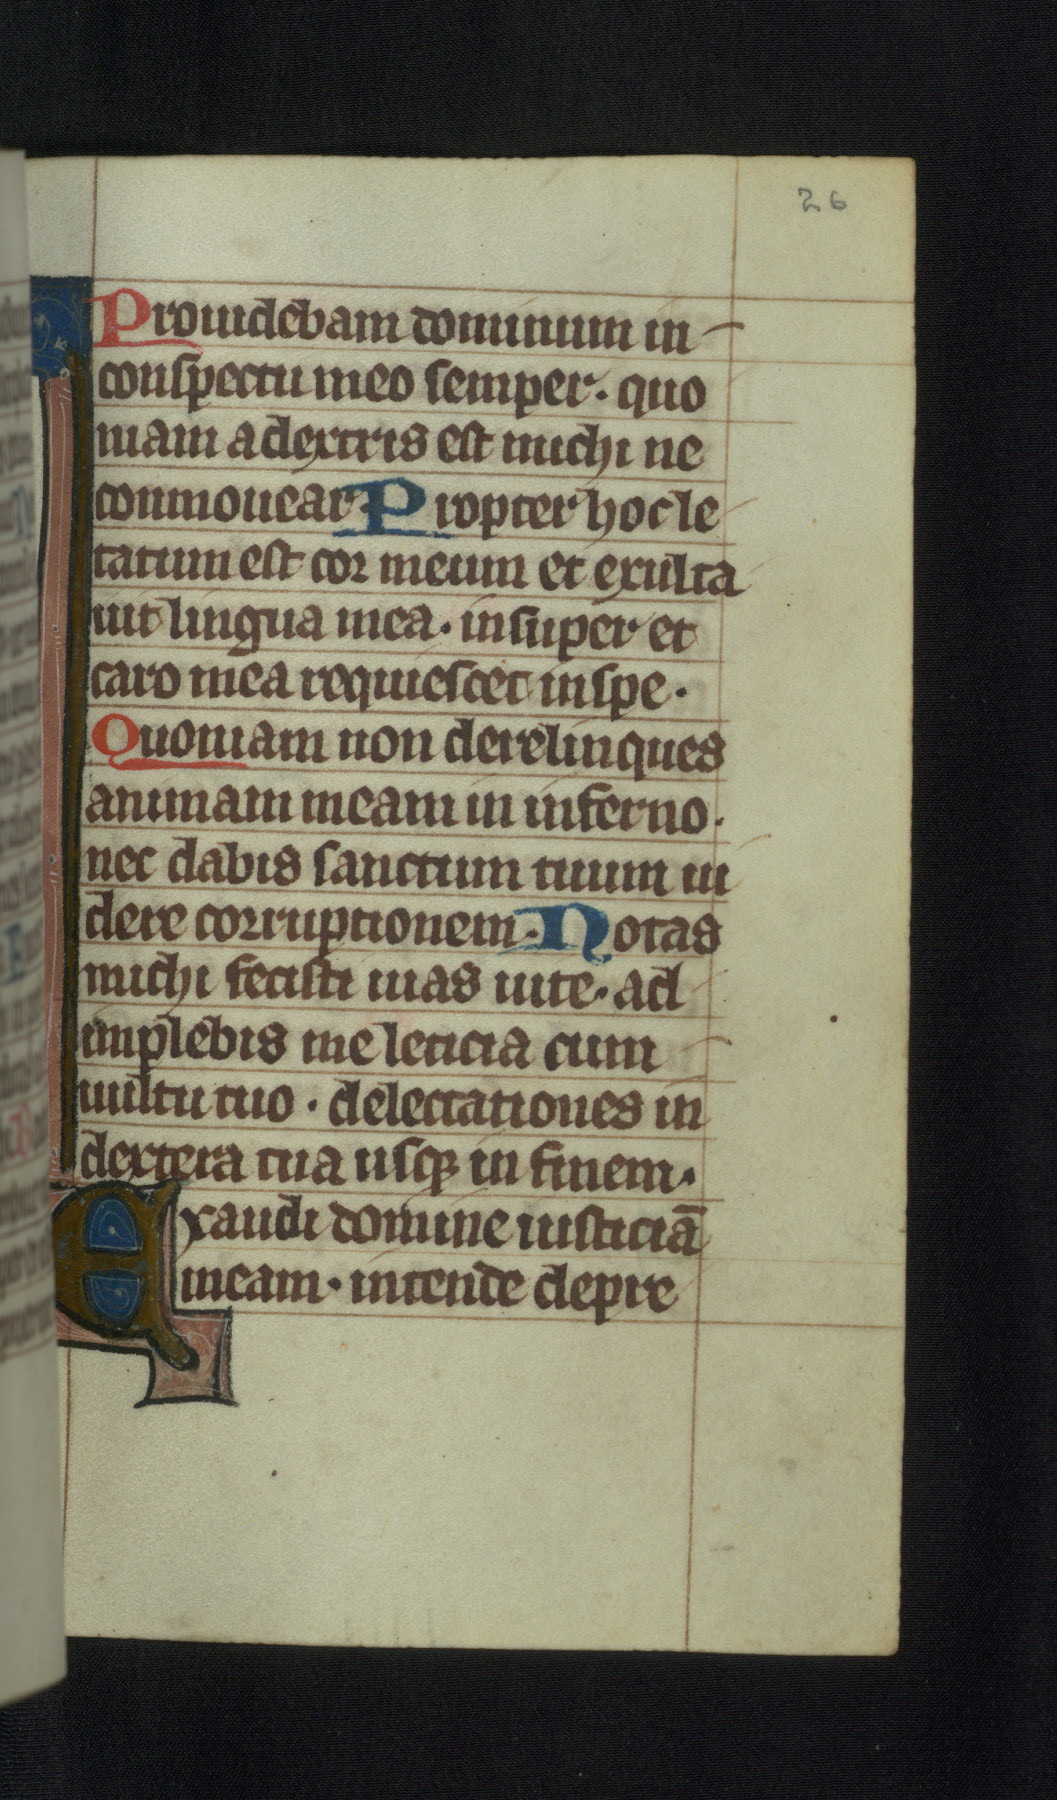 26
Prouidebam dominum in
conspectu meo semper · quo
niam a dextris est michi ne
conmouear · Propter hoc le
tatum est cor meum et exulta
uit lingua mea · insuper et
caro mea requiescet in spe ·
Quoniam non derelinques
animam meam in inferno ·
nec dabis sanctum tuum ui
dere corruptionem · Notas
michi fecisti uias uite · ad
implebis me leticia cum
uultu tuo · delectationes in
dextera tua usqꝫ in finem ·
Exaudi domine iusticiā
meam · intende depre